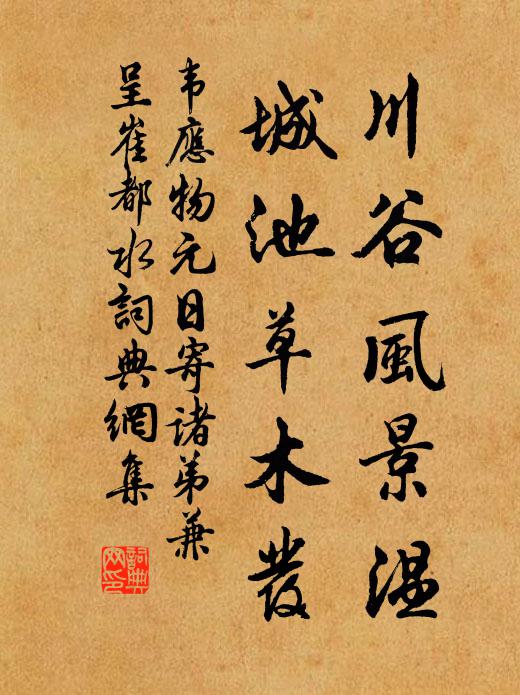 川谷風景温
城池草木發
韦應物元日寄诸弟兼
呈崔都水詞典網集
詞典網印